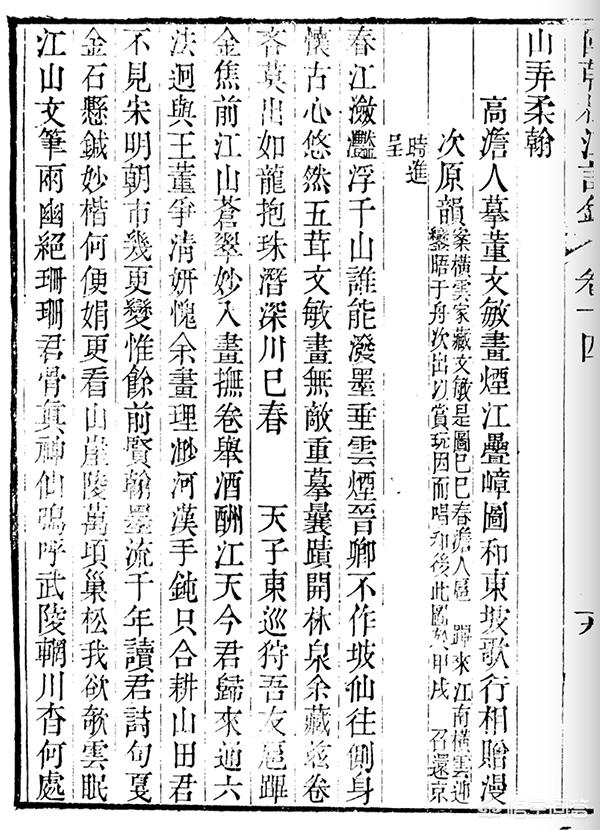 國朝松江詩鈔 卷十四
山弄柔翰
高澹人摹董文敏畫煙江疊嶂圖和東坡歌行相贈漫
次原韻
案橫雲家藏文敏是圖己巳春澹人扈 蹕來江南橫雲迎
鑾晤于舟次出以賞玩因而唱和後此圖於甲戌 召還京
時進
呈
春江瀲灩浮千山誰能潑墨垂雲煙晉卿不作坡仙往側身
懷古心悠然五茸文敏畫無敵重摹曩蹟開林泉余藏茲卷
吝莫出如龍抱珠潛深川巳春 天子東巡狩吾友扈蹕
金焦前江山蒼翠妙入畫撫卷舉酒酬江天今君歸來通六
法迥與王董爭清妍愧余畫理渺河漢手鈍只合耕山田君
不見宋明朝市幾更變惟餘前賢翰墨流千年讀君詩句戛
金石懸鍼妙楷何便娟更看山崖陵萬項巢松我欲欹雲眠
江山文筆兩幽絕珊珊君骨真神仙嗚呼武陵輞川杳何處